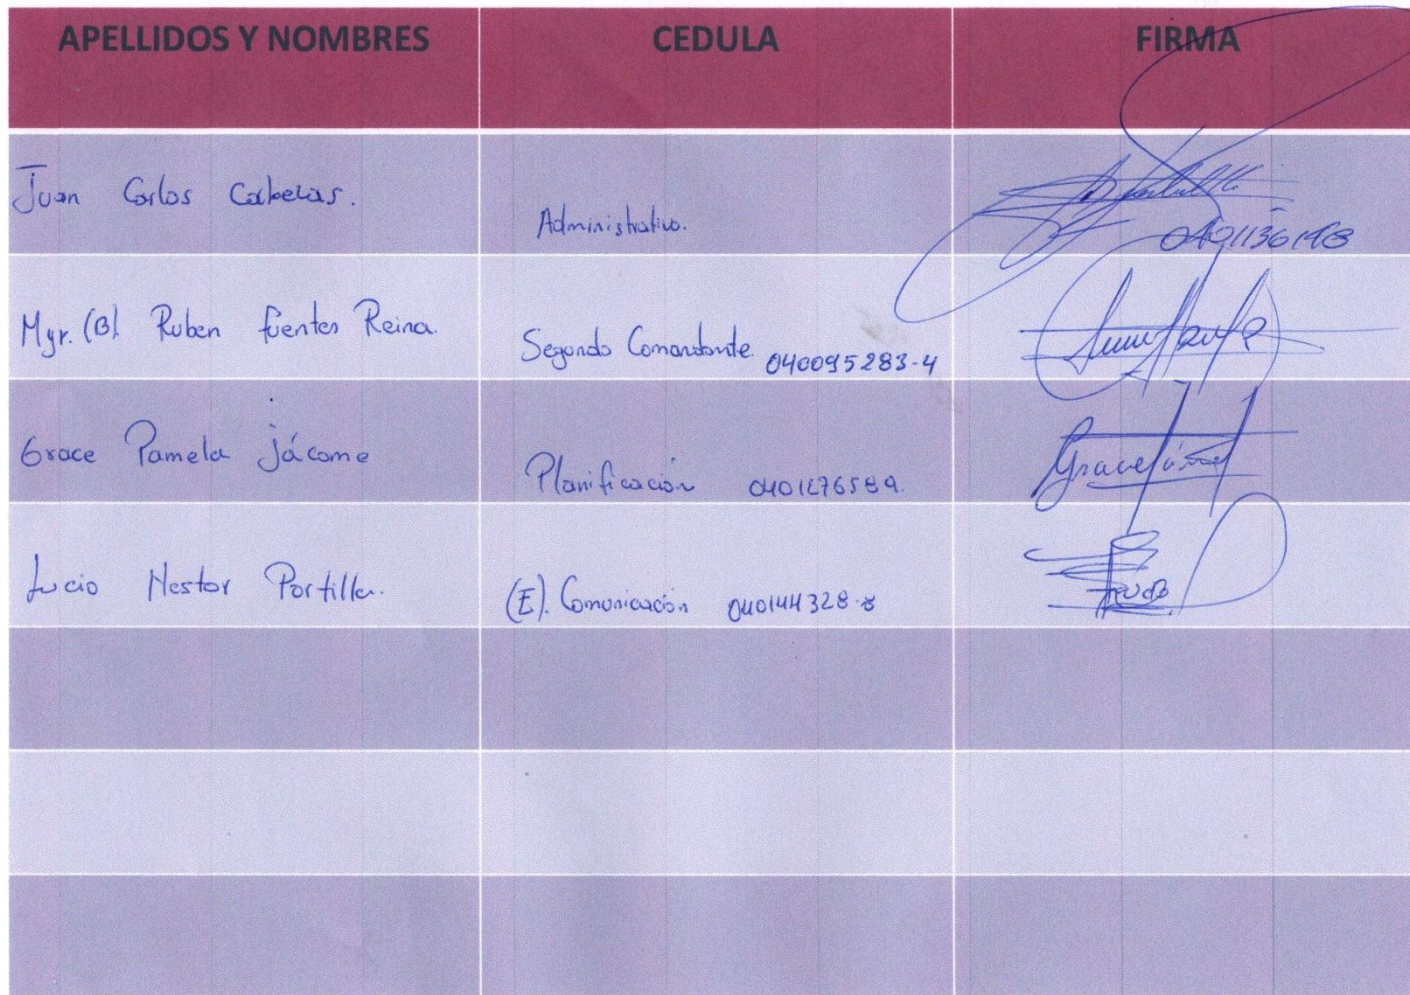 APELLIDOS Y NOMBRES CEDULA FIRMA
Juan Carlos
Administrativo.
Myr. (B). Ruben fuentes Reina.
Segundo Comandante. 040095283-4
Grace Pamela Jácome
Planificación
Lucio Nestor Portilla.
(E). Comunicación 040144328-8